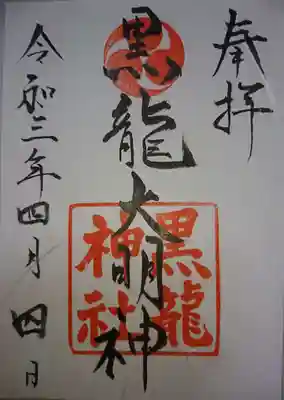 奉拝
黒龍大明神
黒龍
神社
令和三年四月四日